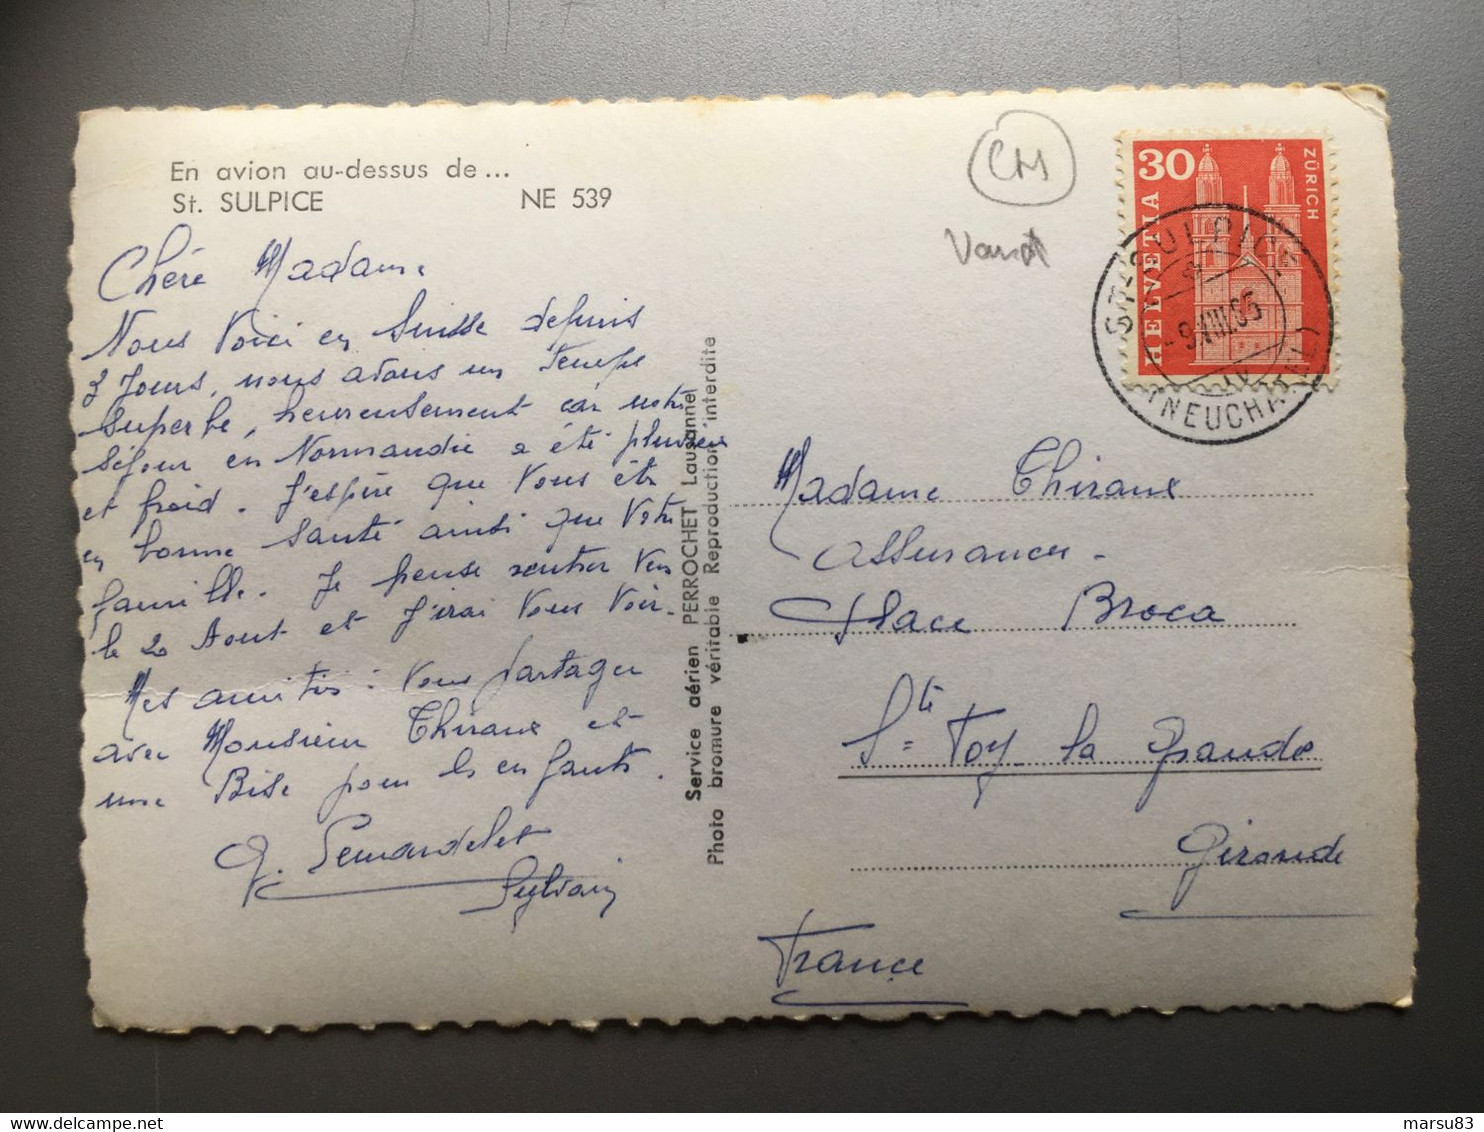 En avion au-dessus de...
St. SULPICE NE 539
Chère Madame
Nous Voici en Suisse depuis
3 Jours, nous avons un temps
superbe, heureusement car notre
séjour en Normandie a été pluvieux
et froid. J'espère que Vous êtes
en bonne santé ainsi que Votre
famille. Je pense rentrer Vers
le 20 Aout et J'irai Vous Voir.
Mes amitiés à Vous partager
avec Monsieur Thiraux et
une Bise pour les enfants.
Sylvain
Service aérien PERROCHET Lausanne
Photo bromure véritable Reproduction interdite
CM
Vaud
30
ZÜRICH
HELVETIA
ST. SULPICE
-9.VIII.65
(NEUCHATEL)
Madame Thiraux
Assurances -
Place Broca
Ste Foy la Grande
Gironde
France
marsu83